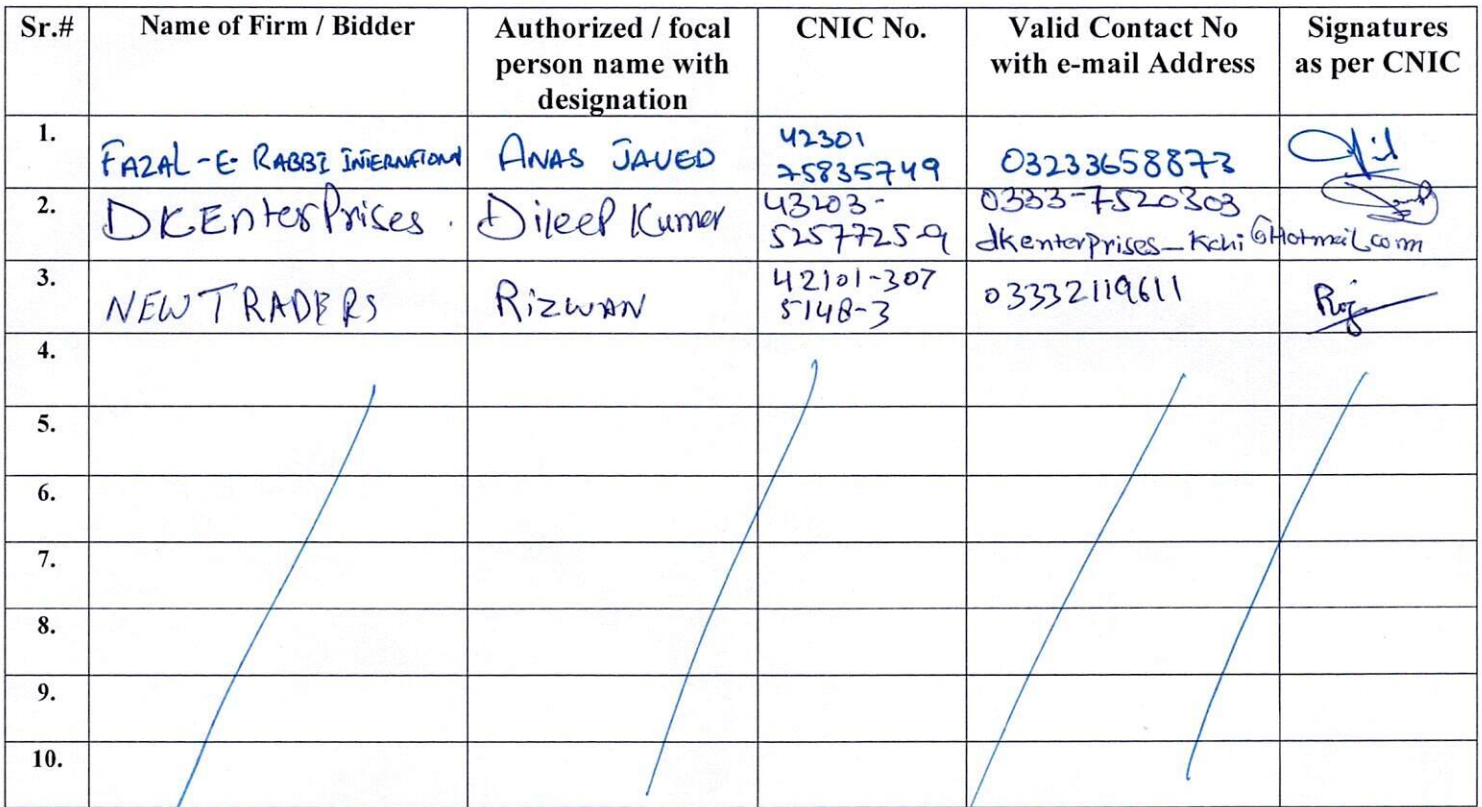 Sr.# Name of Firm / Bidder Authorized / focal person name with designation CNIC No. Valid Contact No with e-mail Address Signatures as per CNIC
1. FAZAL-E-RABBI INTERNATIONAL ANAS JAVED 42301 75835749 03233658873
2. DKEnterPrises. Dileep Kumar 43203- 5257725-9 0333-7520303 dkenterprises_Kchi@Hotmail.com
3. NEW TRADERS RizwAN 42101-307 5148-3 03332119611
4.
5.
6.
7.
8.
9.
10.